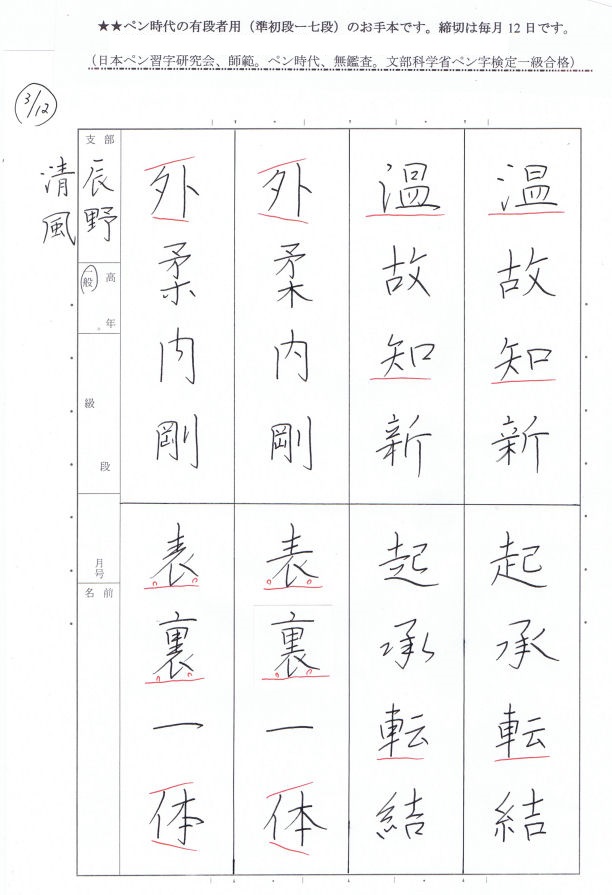 ★★ペン時代の有段者用(準初段ー七段)のお手本です。締切は毎月12日です。
(日本ペン習字研究会、師範。ペン時代、無鑑査。文部科学省ペン字検定一級合格)
3/12
温故知新
起承転結
温故知新
起承転結
外柔内剛
表裏一体
外柔内剛
表裏一体
支部
辰野
清風
一般
高
年
級
段
月号
名前